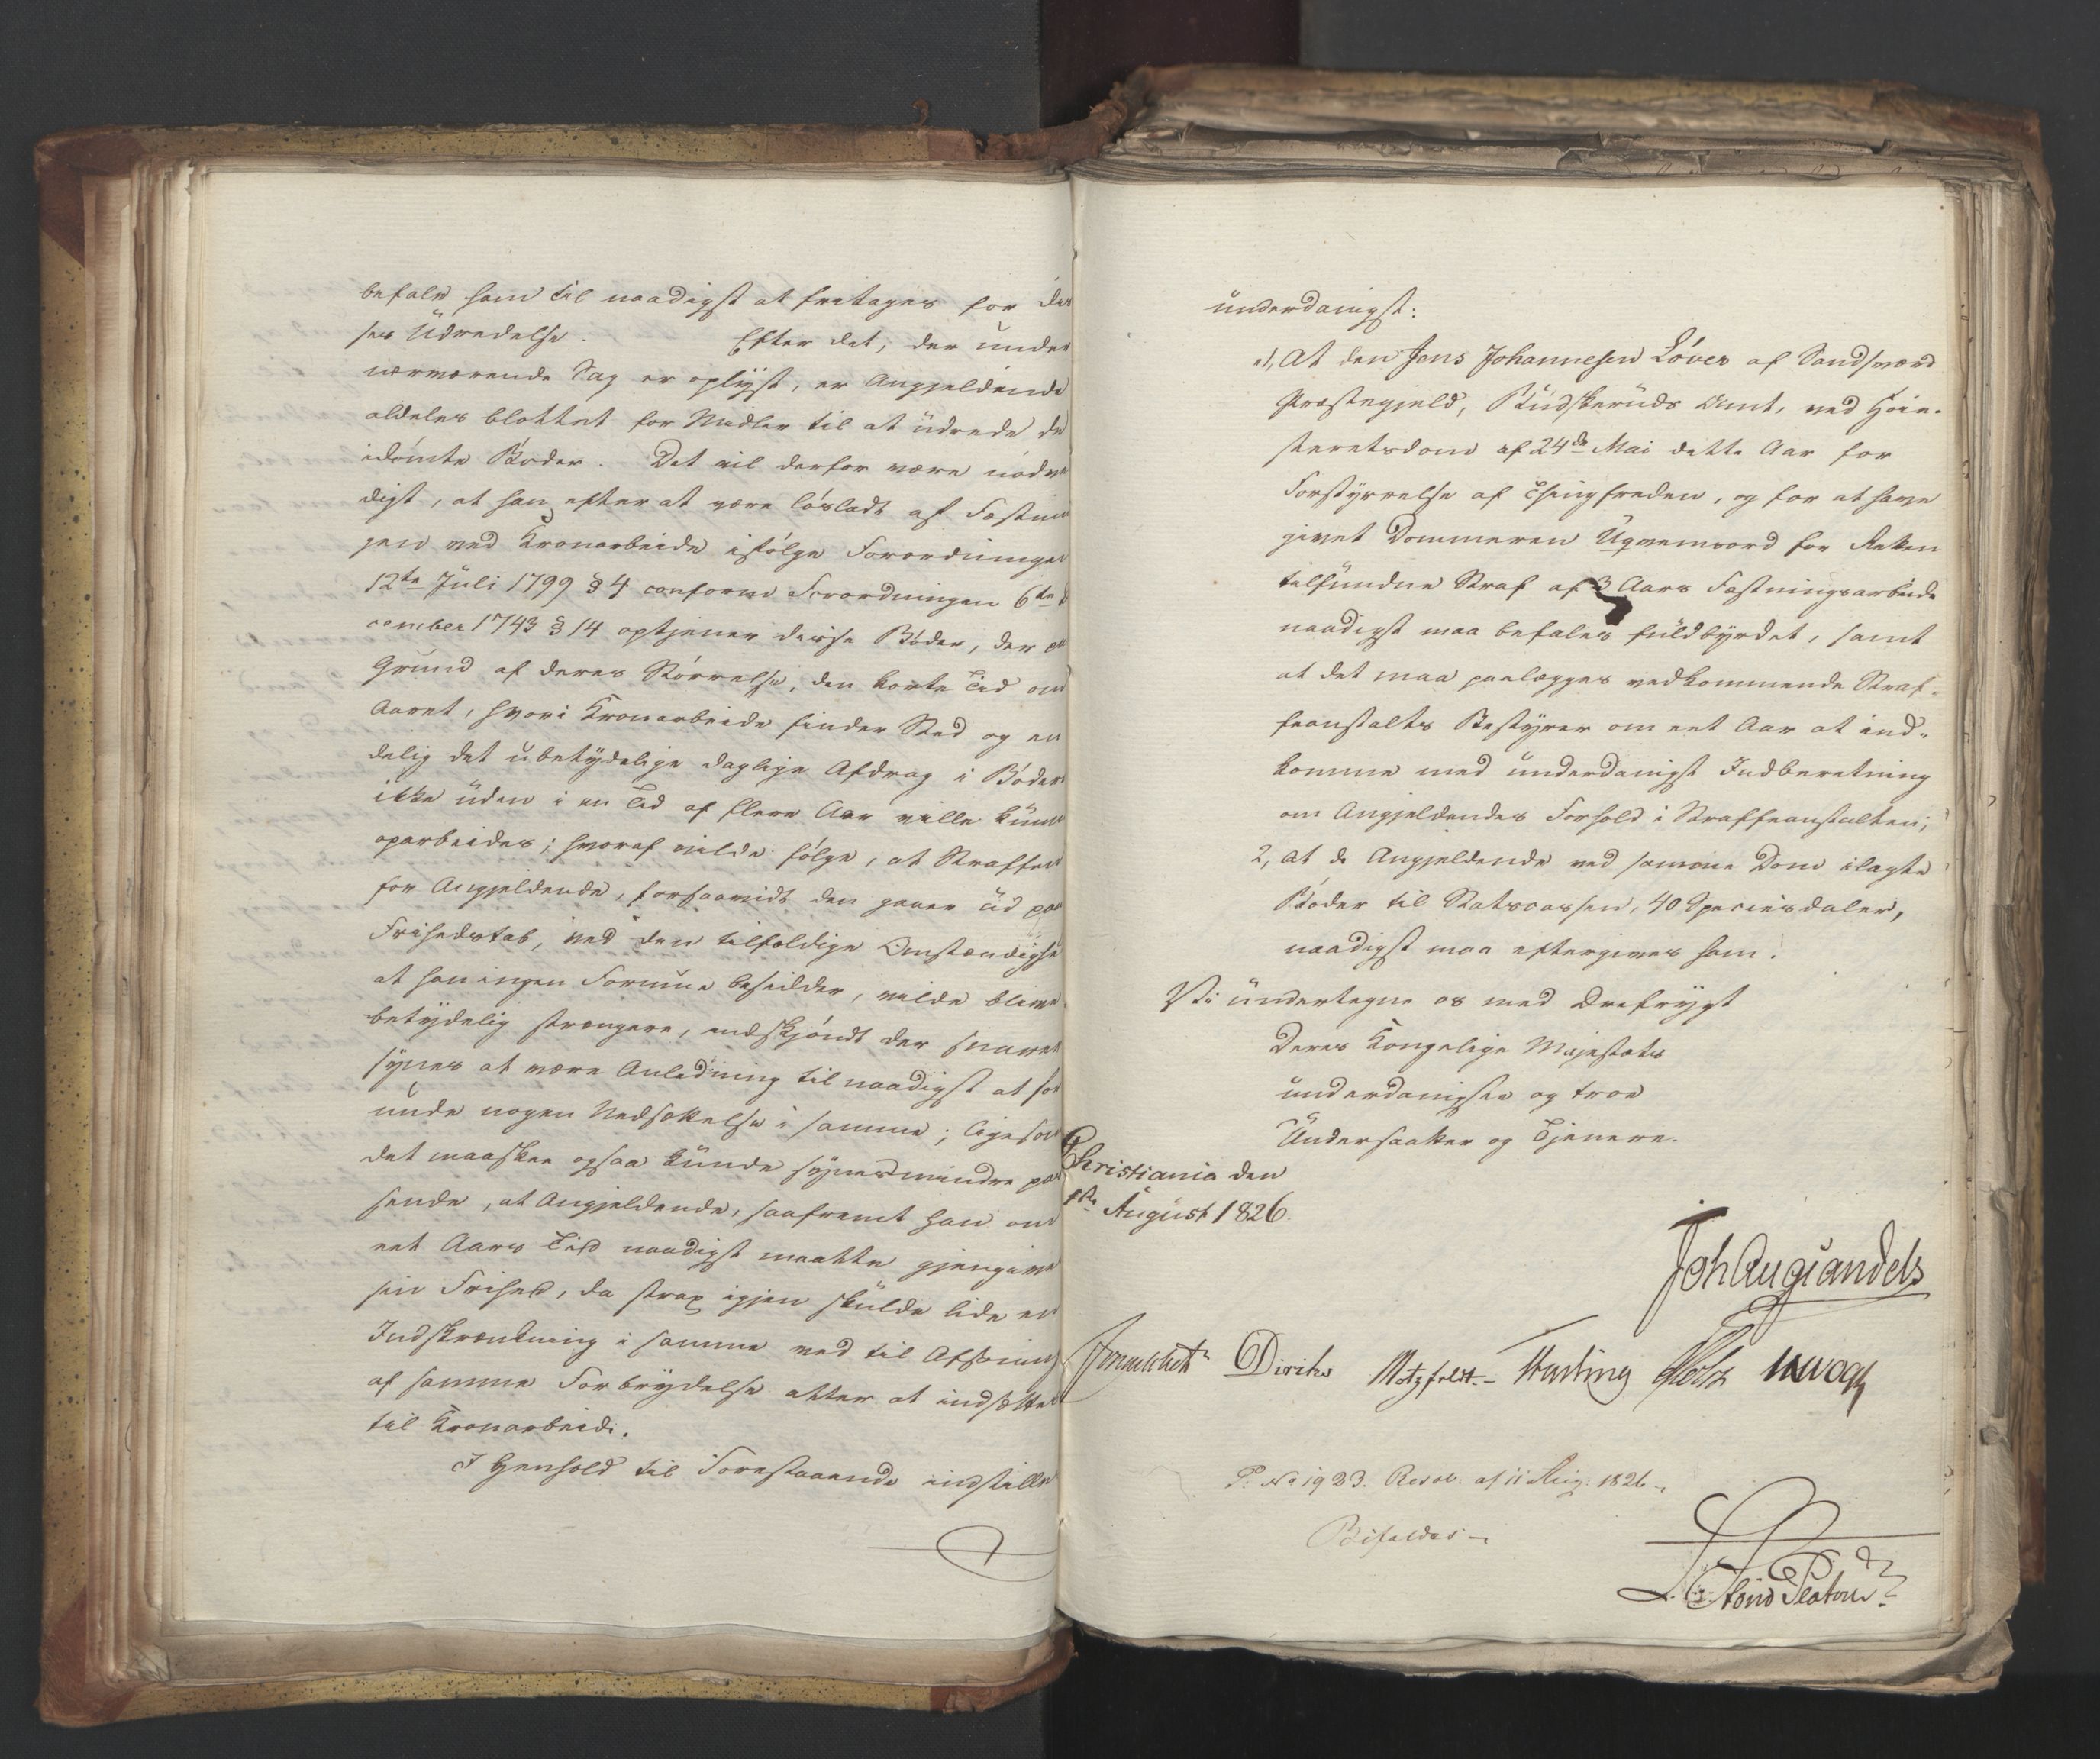 befale ham til naadigst at fritages for des
ses Udredelse. Efter det, der under
nærværende Sag er oplyst, er Angjeldende
aldeles blottet for Midler til at udrede de
idømte Bøder. Det vil derfor være nødven
digt, at han, efter at være løsladt af Fæstnin
gen ved Kronarbeide ifølge Forordningen
12te Juli 1799 § 4 conform Forordningen 6te De
cember 1743 § 14 optjener disse Bøder, der paa
Grund af deres Størrelse, den korte Tid om
Aaret, hvori Kronarbeide finder Sted og en
delig det ubetydelige daglige Afdrag i Bøder
ikke uden i en Tid af flere Aar ville kunne
oparbeides; hvoraf vilde følge, at Straffen
for Angjeldende, forsaavidt den gaaer ud paa
Frihedstab, ved den tilfældige Omstændighed
at han ingen Formue besidder, vilde blive
betydelig strængere, endskjøndt der snarere
synes at være Anledning til naadigst at for
unde nogen Nedsættelse i samme; ligesom
det maaskee ogsaa kunde synes mindre pas
sende, at Angjeldende, saafremt han om
eet Aars Tid naadigst maatte gjengives
sin Frihed, da strax igjen skulde lide en
Indskrænkning i samme ved til Afsoning
af samme Forbrydelse atter at indsættes
til Kronarbeide.
I Henhold til Forestaaende indstilles
underdanigst:
1, At den Jens Johannesen Løver af Sandsværd
Præstegjeld, Budskeruds Amt, ved Høie-
steretsdom af 24de Mai dette Aar for
Forstyrrelse af Thingfreden, og for at have
givet Dommeren Uqvemsord for Retten
tilfundne Straf af 3 Aars Fæstningsarbeide
naadigst maa befales fuldbyrdet, samt
at det maa paalægges vedkommende Straf-
feanstalts Bestyrer om eet Aar at ind-
komme med underdanigst Indberetning
om Angjeldendes Forhold i Straffeanstalten;
2, at de Angjeldende ved samme Dom ilagte
Bøder til Statscassen, 40 Speciesdaler,
naadigst maa eftergives ham.
Vi undertegne os med Ærefrygt
Deres Kongelige Majestæts
underdanigste og troe
Undersaatter og Tjenere.
Christiania den
1ste August 1826.
Joh Aug Sandels
Sommerhielm Diriks Motzfeldt Fasting Holst Vogt
P. No 1923. Resol. af 11 Aug. 1826
Bifaldes